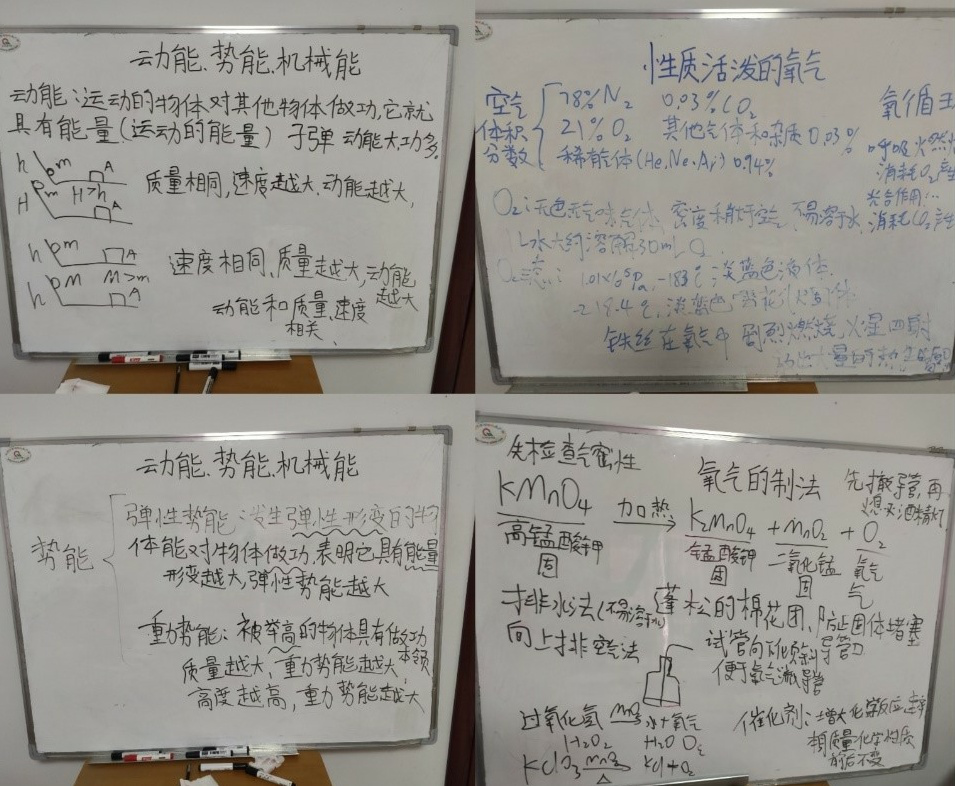 动能、势能、机械能
动能:运动的物体对其他物体做功,它就
具有能量(运动的能量) 子弹 动能大功多。
h m A
质量相同,速度越大、动能越大,
H m H>h A
h m A
速度相同、质量越大,动能
越大
h M M>m A
动能和质量、速度
相关、
性质活泼的氧气
空气
体积
分数
78%N₂ 0.03%CO₂
21%O₂ 其他气体和杂质0.03%
稀有气体(He、Ne、Ar) 0.94%
氧循
呼吸 燃
消耗O₂产
光合作用:
消耗CO₂产
O₂:无色无气味气体 密度稍大于空气 不易溶于水
1L水大约溶解30mL O₂
1.01×10⁵Pa, -183℃ 淡蓝色液体
-218.4℃,淡蓝色雪花状固体
铁丝在氧气中 剧烈燃烧 火星四射
动能、势能、机械能
势能
弹性势能:发生弹性形变的物
体能对物体做功 表明它具有能量
形变越大,弹性势能越大
重力势能:被举高的物体具有做功
本领
质量越大,重力势能越大,
高度越高,重力势能越大
先检查气密性
氧气的制法
先撤导管,再
熄灭酒精灯
KMnO₄ 加热 K₂MnO₄ + MnO₂ + O₂
高锰酸钾 锰酸钾 二氧化锰 氧气
固 固 固 气
排水法(不易溶于水)
向上排空气法
蓬松的棉花团、防止固体堵塞
导管口
试管向下倾斜
便于氧气 导管
过氧化氢 MnO₂ 水+氧气
H₂O₂ H₂O O₂
KClO₃ MnO₂ △ KCl+O₂
催化剂:增大化学反应速率
质量化学性质
前后不变